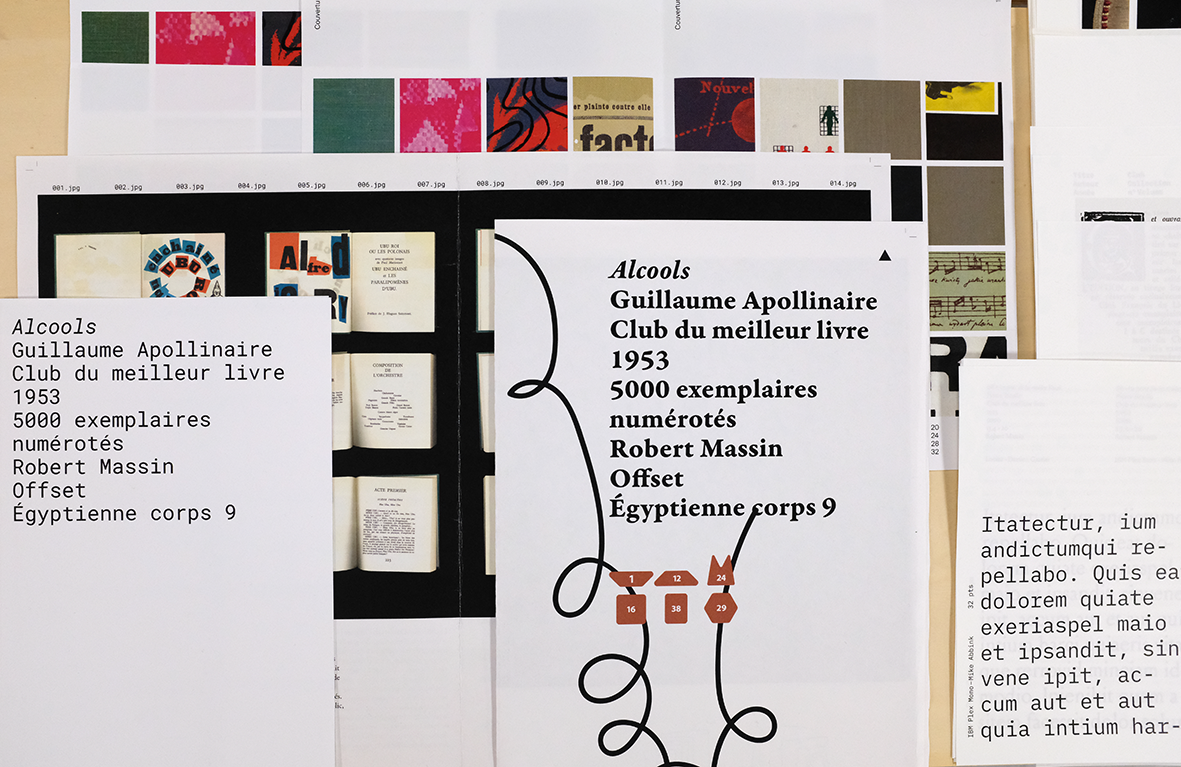 Couvertu
Couvertu
Nouvel
er plainte contre elle
facto
001.jpg 002.jpg 003.jpg 004.jpg 005.jpg 006.jpg 007.jpg 008.jpg 009.jpg 010.jpg 011.jpg 012.jpg 013.jpg 014.jpg
enchaîné
UBU
Alfred
UBU ROI
OU LES POLONAIS
UBU ENCHAINÉ
et LES
PARALIPOMÈNES
D'UBU
COMPOSITION
DE
L'ORCHESTRE
ACTE PREMIER
Alcools
Guillaume Apollinaire
Club du meilleur livre
1953
5000 exemplaires
numérotés
Robert Massin
Offset
Égyptienne corps 9
Alcools
Guillaume Apollinaire
Club du meilleur livre
1953
5000 exemplaires
numérotés
Robert Massin
Offset
Égyptienne corps 9
1 12 24
16 38 29
et ouvra
20
24
28
32
Itatectur, ium
andictumqui re-
pellabo. Quis ea
dolorem quiate
exeriaspel maio
et ipsandit, sin
vene ipit, ac-
cum aut et aut
quia intium har-
IBM Plex Mono-Mike Abbink 32 pts